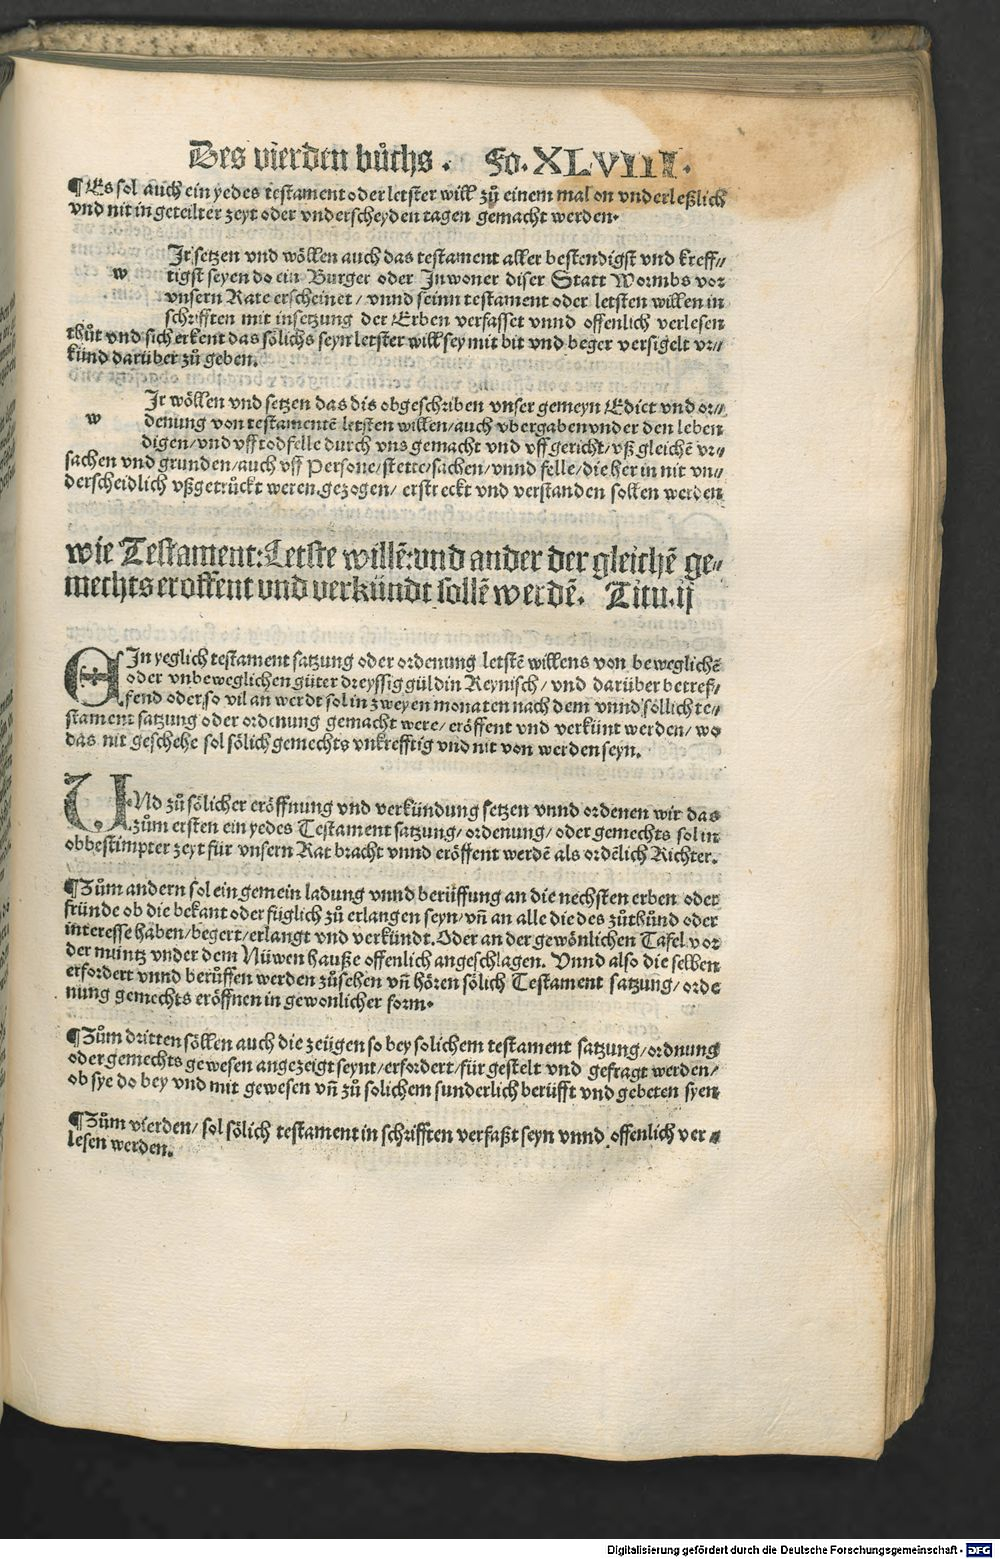 Des vierden bůchs. Fo. XLVIII.
¶Es sol auch ein yedes testament oder letster will zů einem mal on vnderleßlich
vnd nit in geteilter zeyt oder vnderscheyden tagen gemacht werden.
w Jr setzen vnd wöllen auch das testament aller bestendigst vnd kreff⸗
tigst seyen do ein Burger oder Jnwoner diser Statt Wormbs vor
vnsern Rate erscheinet/ vnnd seinn testament oder letsten willen in
schrifften mit insetzung der Erben verfasset vnnd offenlich verlesen
thůt vnd sich erkent das sölichs seyn letster will sey mit bit vnd beger versigelt vr⸗
künd darüber zů geben.
w Jr wöllen vnd setzen das dis obgeschriben vnser gemeyn Edict vnd or⸗
denung von testamentē letsten willen/ auch vbergaben vnder den leben
digen/ vnd vff todfelle durch vns gemacht vnd vffgericht/ vß gleichē vr⸗
sachen vnd grunden/ auch vff Persone/ stette/ sachen/ vnnd felle/ die her in nit vn⸗
derscheidlich vßgetrůckt weren gezogen/ erstreckt vnd verstanden sollen werden
wie Testament: Letste willē: vnd ander der gleichē ge⸗
mechts eroffent vnd verkündt sollē werdē. Titu. ij
EJn yeglich testament satzung oder ordenung letstē willens von beweglichē
oder vnbeweglichen güter dreyssig güldin Reynisch/ vnd darüber betref⸗
fend oder so vil an̄ werdt sol in zweyen monaten nach dem vnnd söllich te⸗
stament satzung oder ordenung gemacht were/ eröffent vnd verkünt werden/ wo
das nit geschehe sol sölich gemechts vnkrefftig vnd nit von werden seyn.
VNd zů sölicher eröffnung vnd verkündung setzen vnnd ordenen wir das
zům ersten ein yedes Testament satzung/ ordenung/ oder gemechts sol in
obbestimpter zeyt für vnsern Rat bracht vnnd eröffent werdē als ordēlich Richter.
¶Zům andern sol ein gemein ladung vnnd berüffung an die nechsten erben oder
fründe ob die bekant oder füglich zů erlangen seyn/ vn̄ an alle die des zůthůnd oder
interesse haben/ begert/ erlangt vnd verkündt. Oder an der gewönlichen Tafel vor
der müntz vnder dem Nüwen hauße offenlich angeschlagen. Vnnd also die selben
erfordert vnnd berůffen werden zůsehen vn̄ hören sölich Testament satzung/ orde
nung gemechts eröffnen in gewonlicher form.
¶Zům dritten söllen auch die zeügen so bey solichem testament satzung/ ordnung
oder gemechts gewesen angezeigt seynt/ erfordert/ für gestelt vnd gefragt werden/
ob sye do bey vnd mit gewesen vn̄ zů solichem sunderlich berüfft vnd gebeten syen
¶Zům vierden/ sol sölich testament in schrifften verfaßt seyn vnnd offenlich ver⸗
lesen werden.
Digitalisierung gefördert durch die Deutsche Forschungsgemeinschaft - DFG